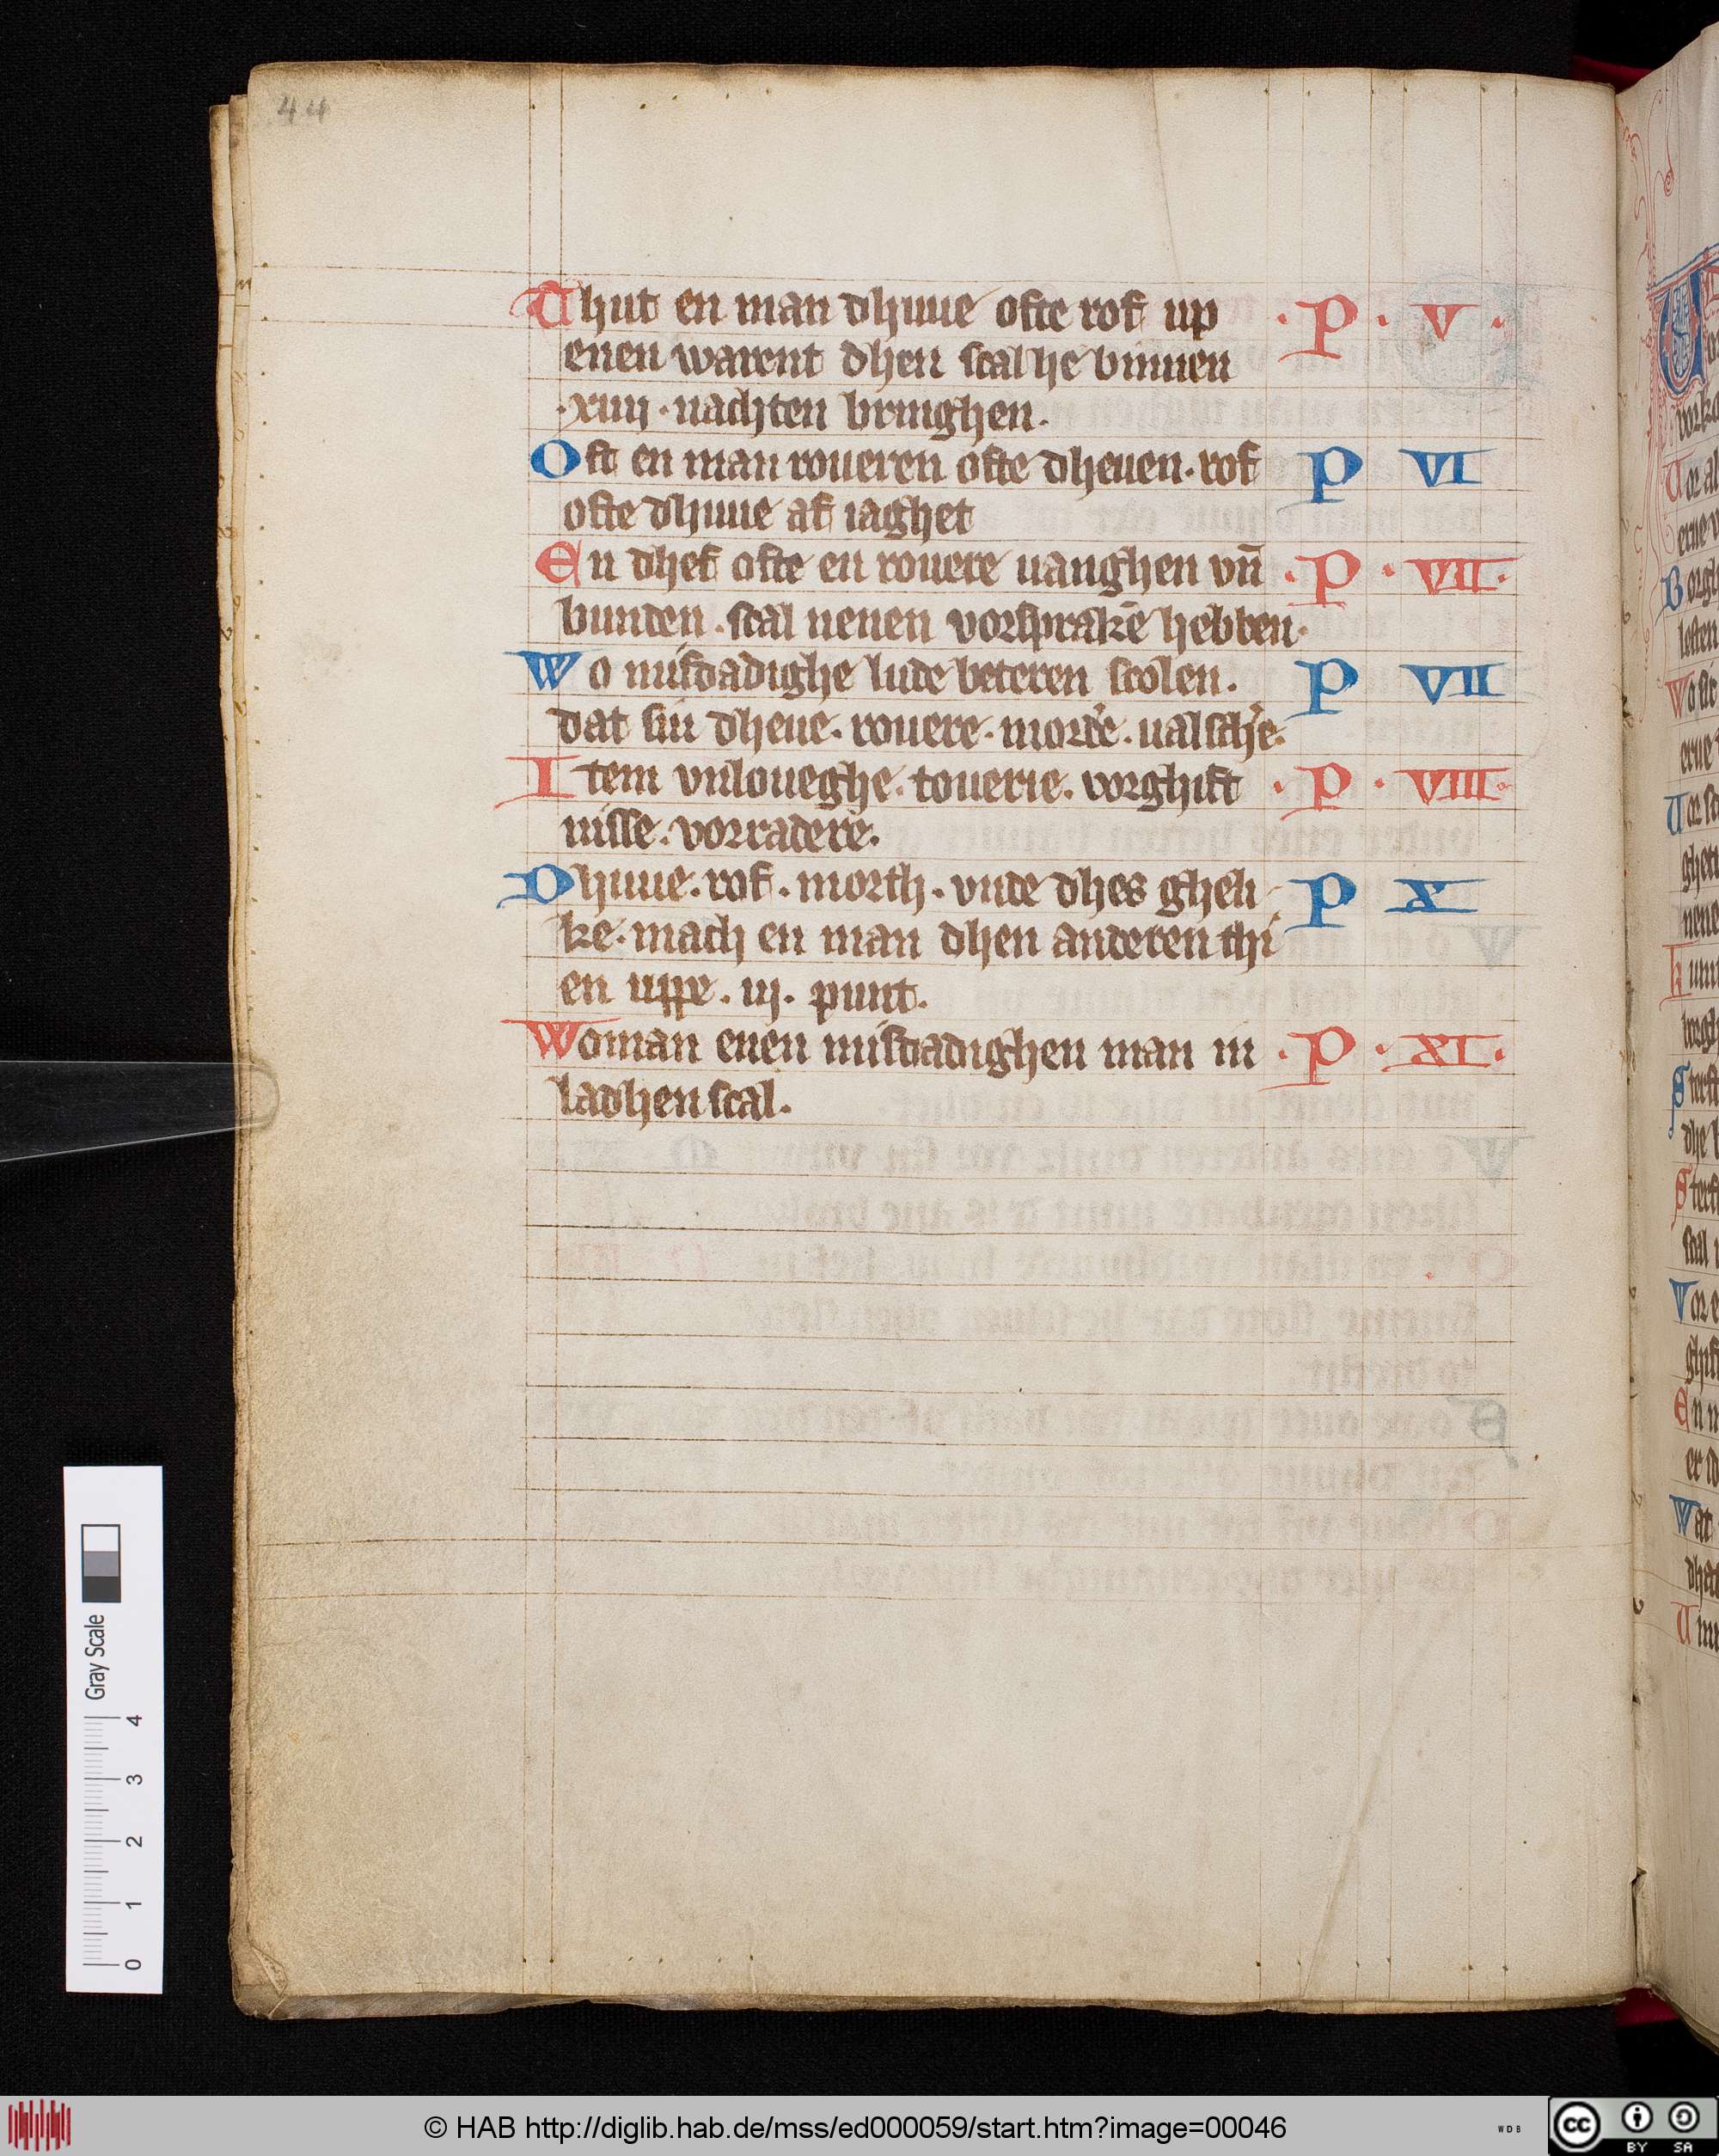 44
Thut en man dhuue ofte rof up · P · V ·
enen warent dhen scal he binnen
·xiiij· nachten bringhen.
Oft en man roueren ofte dheuen. rof P VI
ofte dhuue af iaghet
En dhef ofte en rouere uanghen vn̄ · P · VII ·
bunden. scal nenen vorsprakē hebben.
Wo misdadighe lude beteren scolen. P VII
dat sin dheue. rouere. mordere. ualschere.
Item vnloueghe. touerie. vorghift · P · VIII ·
nisse. vorradere.
Dhuue. rof. morth. vnde dhes gheli P X
ke. mach en man dhen anderen thi
en uppe. iij. punt.
Woman enen misdadighen man in · P · XI ·
ladhen scal.
Gray Scale
0 1 2 3 4
© HAB http://diglib.hab.de/mss/ed000059/start.htm?image=00046
WDB
cc BY SA